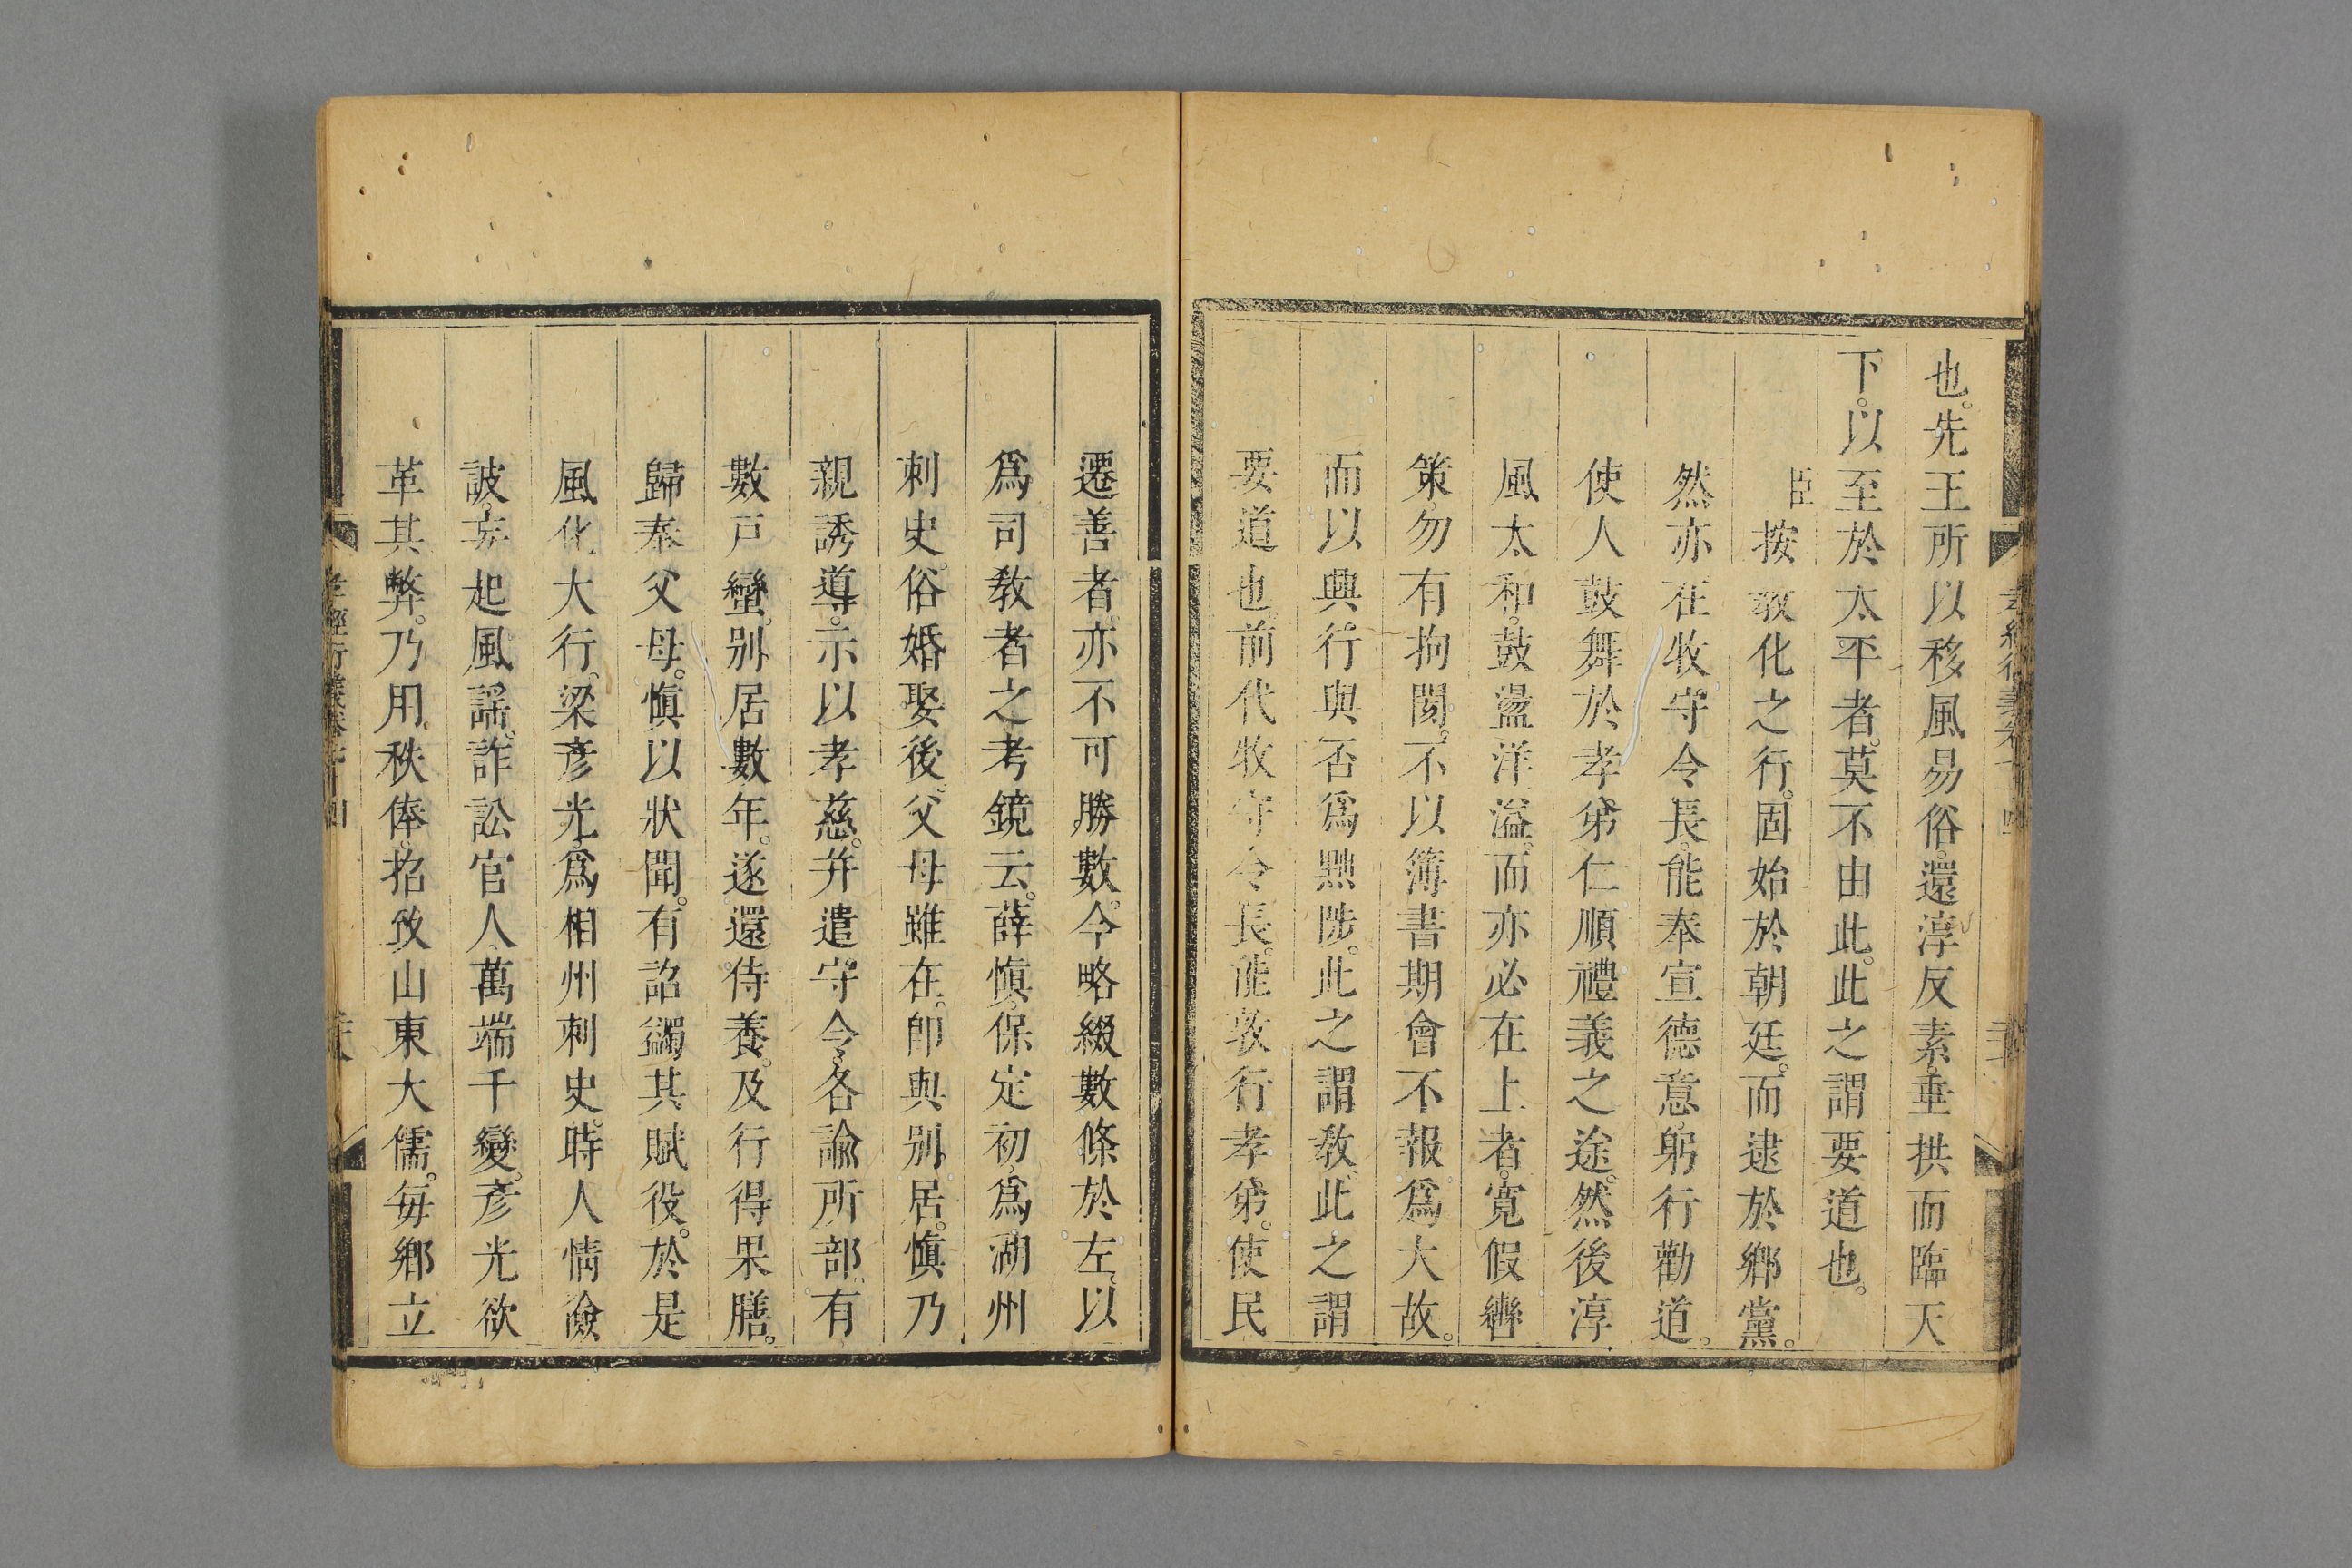 也。先王所以移風易俗。還淳反素。垂拱而臨天
下。以至於太平者。莫不由此。此之謂要道也。
臣按教化之行。固始於朝廷。而逮於鄉黨。
然亦在牧守令長。能奉宣德意。躬行勸道。
使人鼓舞於孝弟仁順禮義之途。然後淳
風太和。鼓盪洋溢。而亦必在上者。寬假轡
策。勿有拘閡。不以簿書期會不報。爲大故。
而以興行與否爲黜陟。此之謂教。此之謂
要道也。前代牧守令長。能敦行孝弟。使民
遷善者。亦不可勝數。今略綴數條於左。以
爲司教者之考鏡云。薛愼。保定初。爲湖州
刺史。俗婚娶後。父母雖在。卽與別居。愼乃
親誘導。示以孝慈。幷遣守令。各諭所部。有
數戸蠻。別居數年。遂還侍養。及行得果膳。
歸奉父母。愼以狀聞。有詔蠲其賦役。於是
風化大行。梁彥光。爲相州刺史。時人情險
詖。妄起風謡。訴訟官人。萬端千變。彥光欲
革其弊。乃用秩俸。招致山東大儒。每鄉立
孝經衍義卷十四